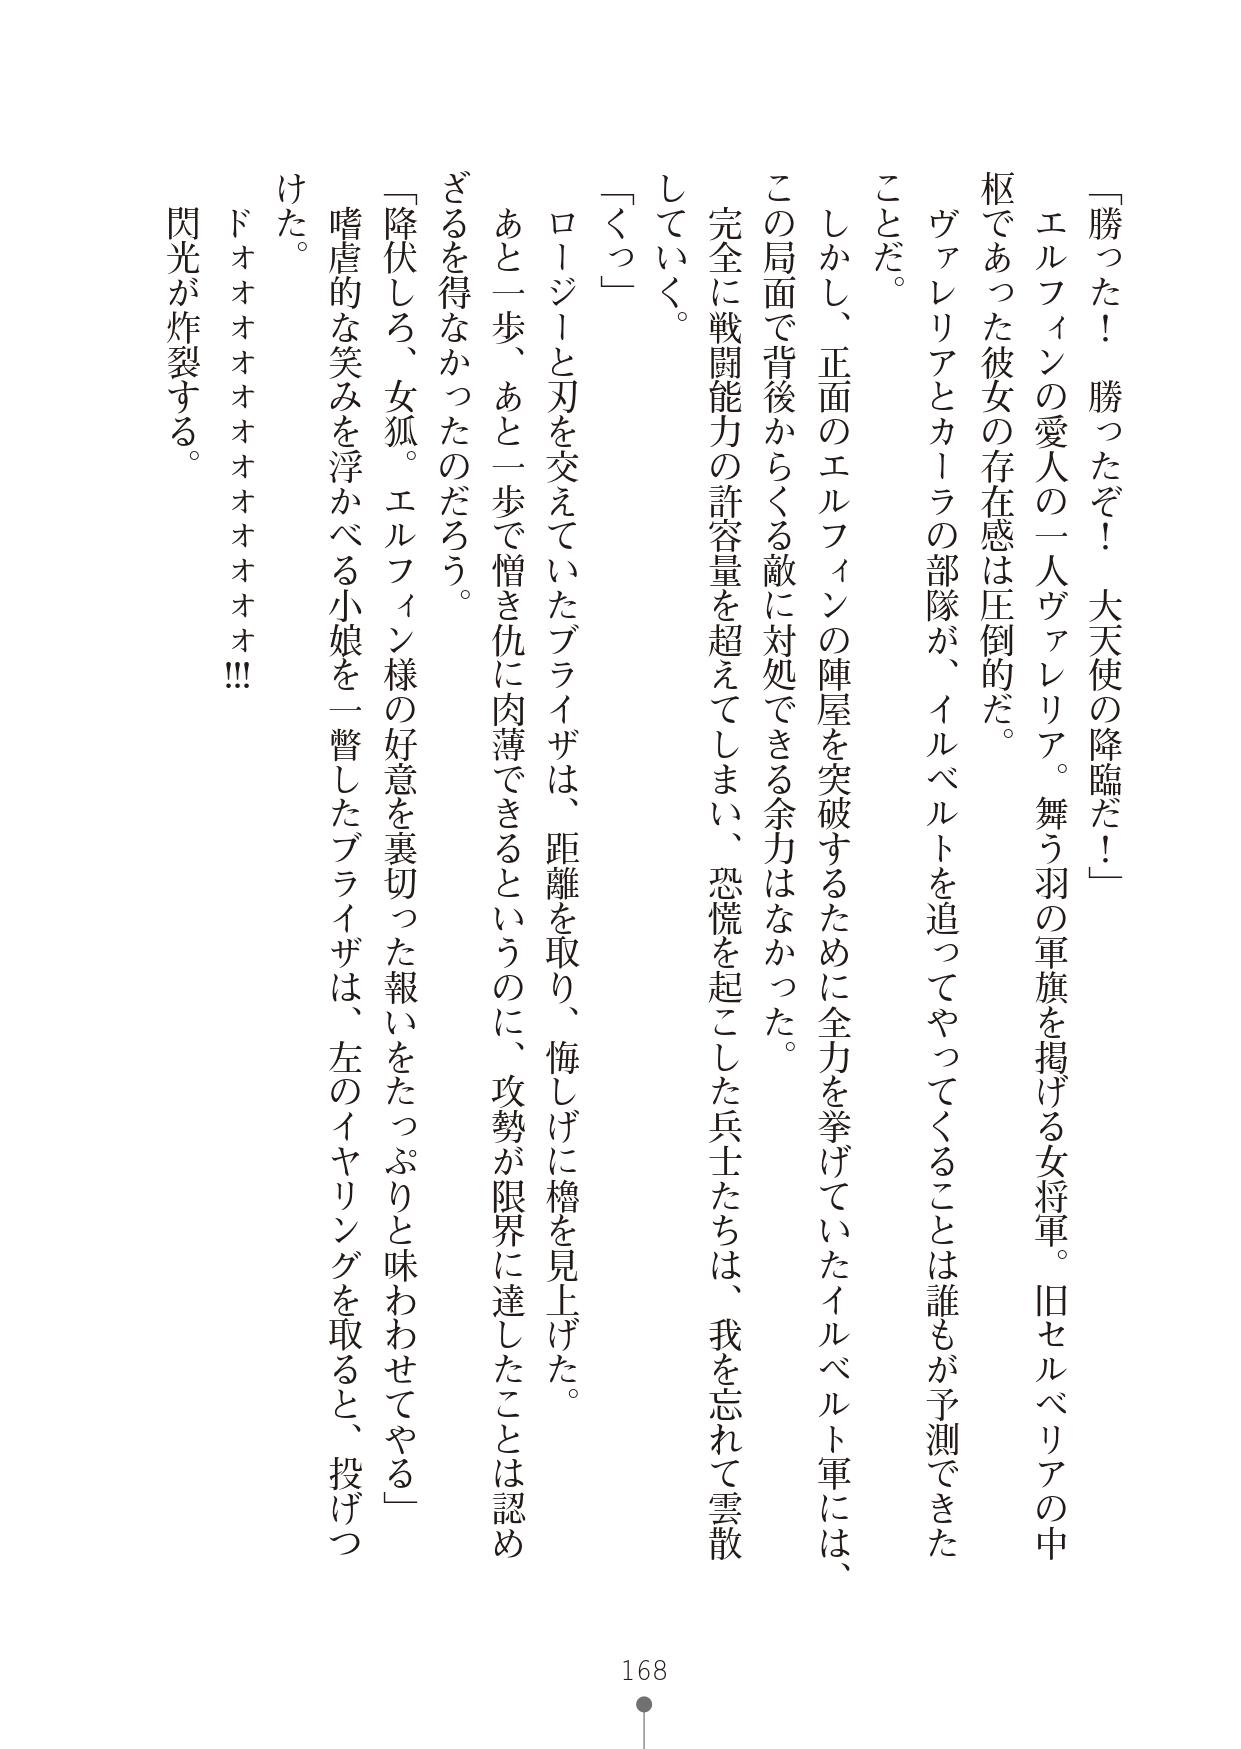 「勝った！　勝ったぞ！　大天使の降臨だ！」
　エルフィンの愛人の一人ヴァレリア。舞う羽の軍旗を掲げる女将軍。旧セルベリアの中
枢であった彼女の存在感は圧倒的だ。
　ヴァレリアとカーラの部隊が、イルベルトを追ってやってくることは誰もが予測できた
ことだ。
　しかし、正面のエルフィンの陣屋を突破するために全力を挙げていたイルベルト軍には、
この局面で背後からくる敵に対処できる余力はなかった。
　完全に戦闘能力の許容量を超えてしまい、恐慌を起こした兵士たちは、我を忘れて雲散
していく。
「くっ」
　ロージーと刃を交えていたブライザは、距離を取り、悔しげに櫓を見上げた。
　あと一歩、あと一歩で憎き仇に肉薄できるというのに、攻勢が限界に達したことは認め
ざるを得なかったのだろう。
「降伏しろ、女狐。エルフィン様の好意を裏切った報いをたっぷりと味わわせてやる」
　嗜虐的な笑みを浮かべる小娘を一瞥したブライザは、左のイヤリングを取ると、投げつ
けた。
　ドォォォォォォォォォォォォ!!!
　閃光が炸裂する。
168